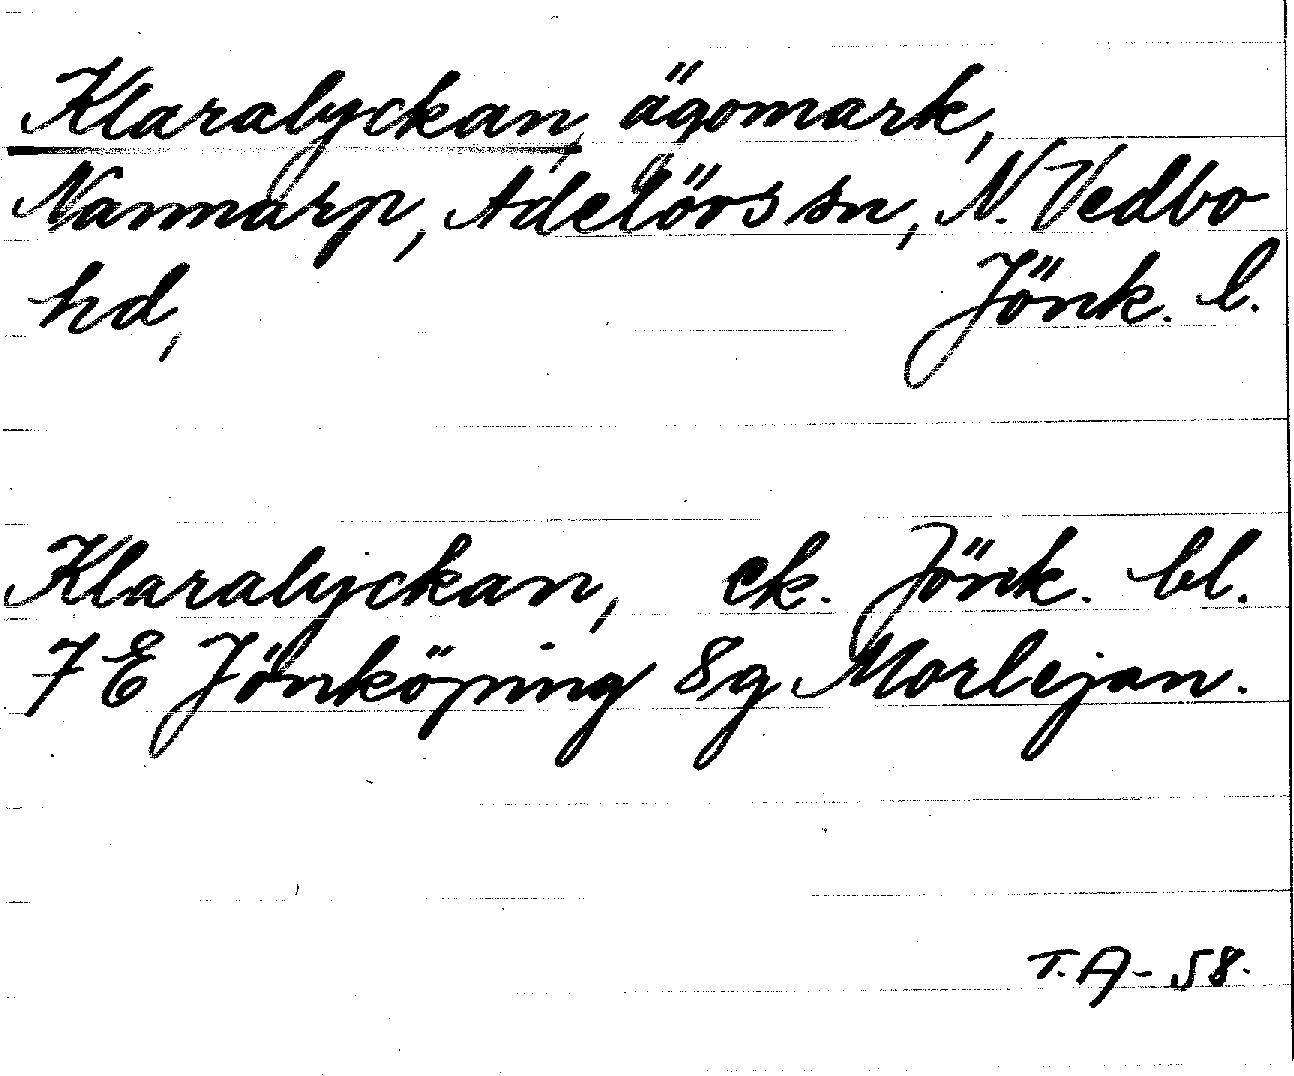 Klaralyckan, ägomark,
Nannarp, Adelövs sn, N. Vedbo
hd, Jönk. l.
Klaralyckan, ek. Jönk. bl.
7 E Jönköping 8g Morlejan.
T.A-58.